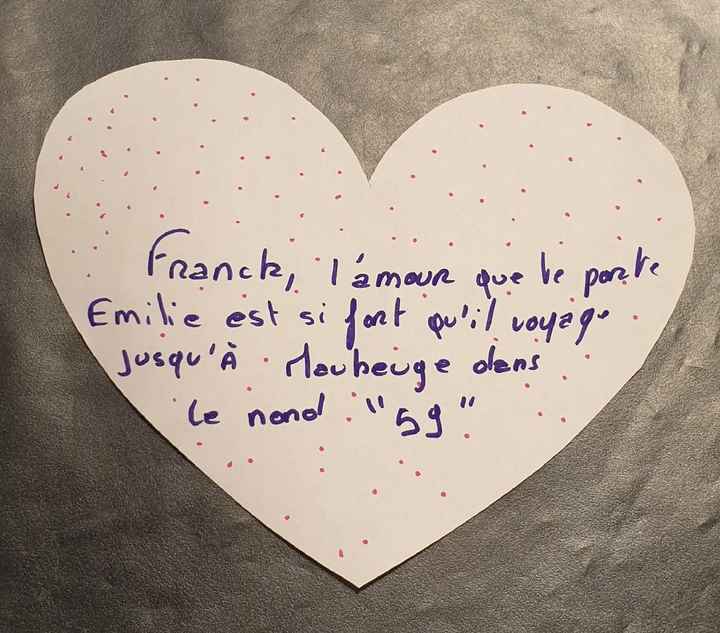 Franck, l'amour que te porte
Emilie est si fort qu'il voyage
jusqu'À Maubeuge dans
le nord "59"